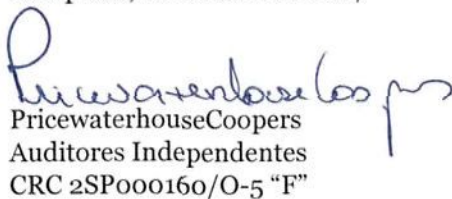 PricewaterhouseCoopers
PricewaterhouseCoopers
Auditores Independentes
CRC 2SP000160/O-5 “F”